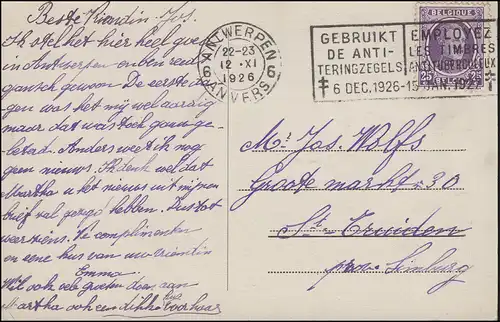 Beste Vriendin Jos.
Ik stel het hier heel goed
in Antwerpen en ben reeds
gansch gewoon. De eerste da
gen was het mij wel aardig
maar dat was toch gauw ge
beterd. Anders weet ik nog
geen nieuws. Ik denk wel dat
Martha u het nieuws uit mijnen
brief zal gezegd hebben. Dus tot
weerziens. Vele complimenten
en eene kus van uw vriendin
Emma.
Wil ook veel groeten doen aan
Martha ook een dikke kus voor haar
ANTWERPEN 6
22-23
12 · XI
1926
6 ANVERS
GEBRUIKT
DE ANTI-
TERINGZEGELS
6 DEC. 1926-15 JAN. 1927
EMPLOYEZ
LES TIMBRES
ANTITUBERCULEUX
BELGIQUE
25 25
Mr Jos. Wolfs
Groote markt 30
St-Truiden
prov. Limburg